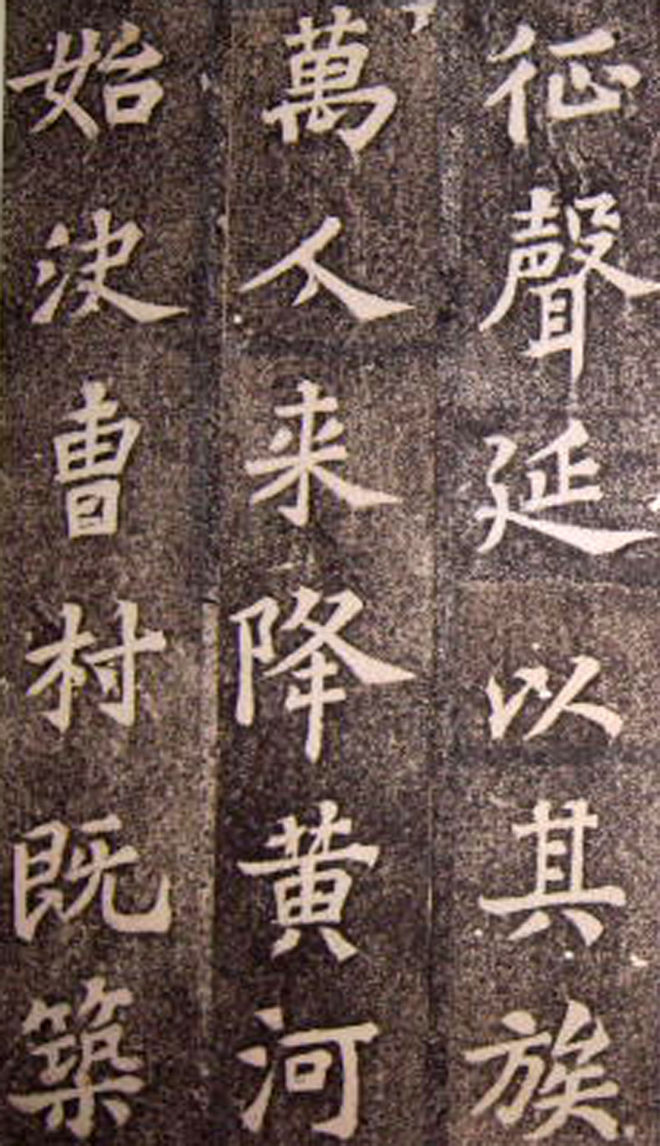 征聲延以其族
萬人来降黄河
始决曹村既築